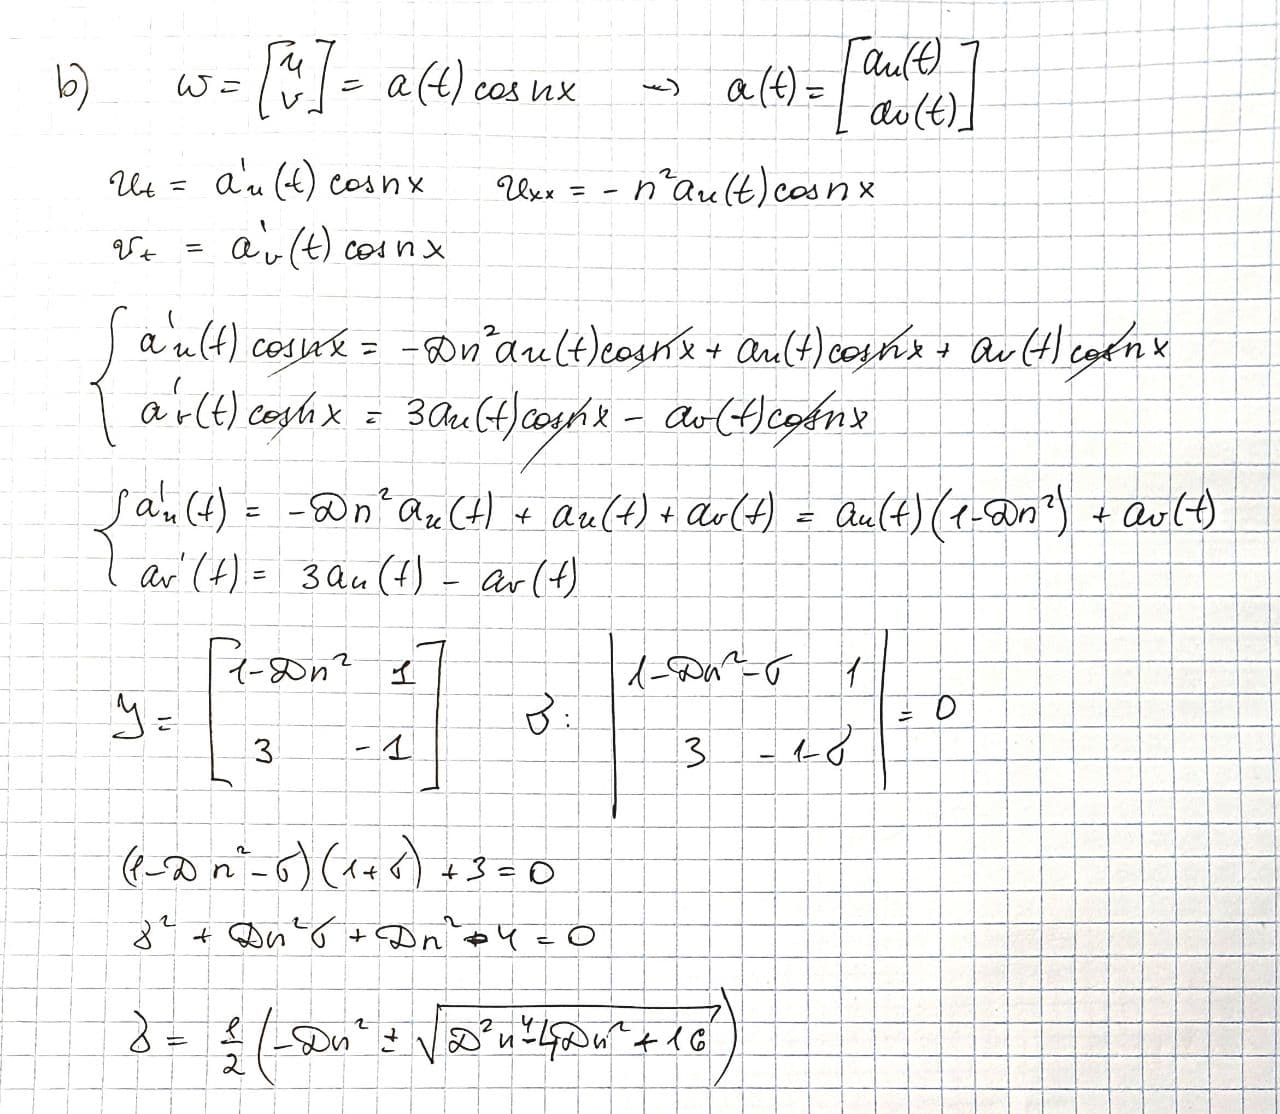 b) w = [u v] = a(t) cos nx ⇝ a(t) = [au(t) av(t)]
ut = a'u(t) cosnx uxx = - n²au(t)cosnx
vt = a'v(t) cosnx
{ a'u(t) cosnx = -Dn²au(t)cosnx + au(t)cosnx + av(t)cosnx
a'v(t) cosnx = 3au(t)cosnx - av(t)cosnx
{ a'u(t) = -Dn²au(t) + au(t) + av(t) = au(t)(1-Dn²) + av(t)
av'(t) = 3au(t) - av(t)
y = [1-Dn² 1 3 -1] σ: |1-Dn²-σ 1 3 -1-σ| = 0
(1-Dn²-σ)(1+σ) + 3 = 0
σ² + Dn²σ + Dn² - 4 = 0
σ = 1/2 (-Dn² ± √(D²n⁴-4Dn²+16))